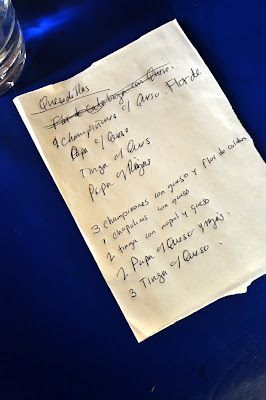 Quesadillas
Flor de Calabaza con Queso.
4 Champiñones c/ Queso. Flor de
Papa c/ Queso
Tinga c/ Ques
Papa c/ Rajas
3 champiñones con queso y flor de calaba
1 chapulines con queso
2 tinga con nopal y queso
2 Papa c/ Queso y rajas.
3 Tinga c/ Queso.